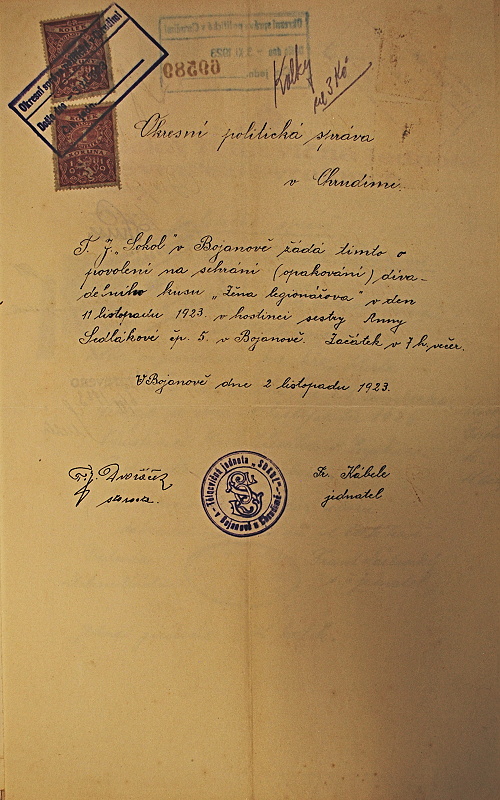 Okresní správa politická v Chrudimi
Došlo dne - 3 XI 1923
60580
Kolky
Okresní sp
Došlo
KOLEK
KORUNA
Okresní politická správa
v Chrudimi.
T. J. „Sokol" v Bojanově žádá tímto o
povolení na sehrání (opakování) diva-
delního kusu „Žena legionářova" v den
11 listopadu 1923. v hostinci sestry Anny
Sedlákové čp. 5. v Bojanově. Začátek v 7 h. večer.
V Bojanově dne 2 listopadu 1923.
F. J. Dvořáček
starosta.
Tělocvičná jednota „Sokol"
v Bojanově u Chrudimě
Fr. Kábele
jednatel